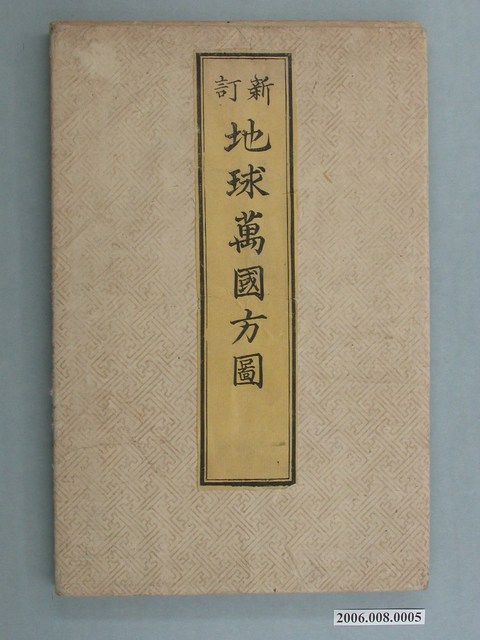 新訂
地球萬國方圖
2006.008.0005